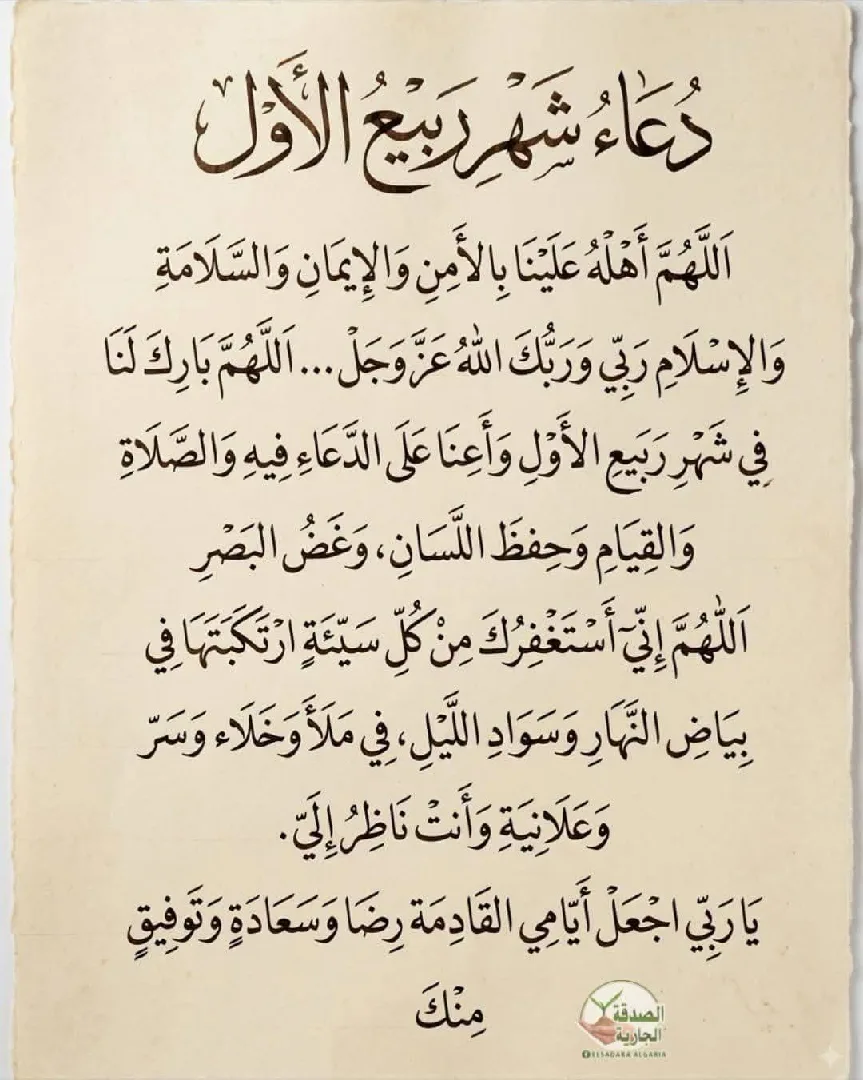 دُعَاءُ شَهْرِ رَبِيْعُ الأَوْل
اَللَّهُمَّ أَهْلَهُ عَلَيْنَا بِالأَمِنِ وَالإِيمَانِ وَالسَّلَامَةِ
وَالإِسْلَامِ رَبِّي وَرَبُّكَ اللهُ عَزَّ وَجَلْ... اَللَّهُمَّ بَارِكَ لَنَا
فِي شَهْرِ رَبَيعِ الأَوْلِ وَأَعِنَا عَلَى الدَّعَاءِ فِيهِ وَالصَّلَاةِ
وَالقِيَامِ وَحِفظَ اللَّسَانِ، وَغَضُ البَصْرِ
اَللّٰهُمَّ إِنِّيَ أَسْتَغْفِرُكَ مِنْ كُلِّ سَيّئَةٍ ارْتَكَبَتَهَا فِي
بِيَاضِ النَّهَارِ وَسَوَادِ اللَّيْلِ، فِي مَلَأَ وَخَلَاء وَسَرّ
وَعَلَانِيَةِ وَأَنتْ نَاظِرُ إِلَيّ.
يَا رَبِّي اجْعَلْ أَيَّامِي القَادِمَة رِضَا وَسَعَادَةٍ وَتَوفِيقٍ
مِنْكَ
الصدقة
الجارية
ELSADAKA ALGARIA